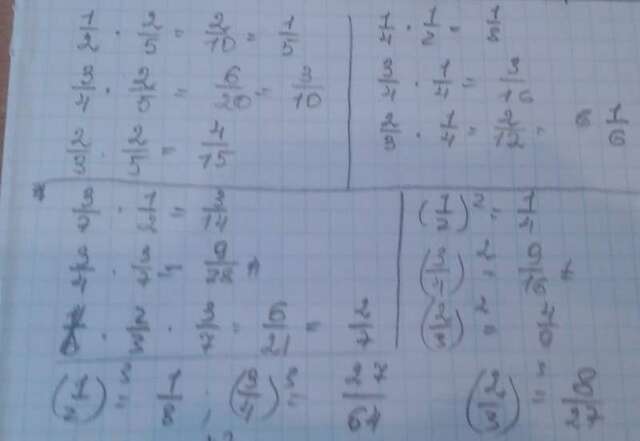 1/2 · 2/5 = 2/10 = 1/5
3/4 · 2/5 = 6/20 = 3/10
2/3 · 2/5 = 4/15
1/4 · 1/2 = 1/8
3/4 · 1/4 = 3/16
2/3 · 1/4 = 2/12 = 1/6
3/7 · 1/2 = 3/14
3/4 · 3/7 = 9/28
2/3 · 3/7 = 6/21 = 2/7
(1/2)² = 1/4
(3/4)² = 9/16
(2/3)² = 4/9
(1/2)³ = 1/8, (3/4)³ = 27/64 (2/3)³ = 8/27